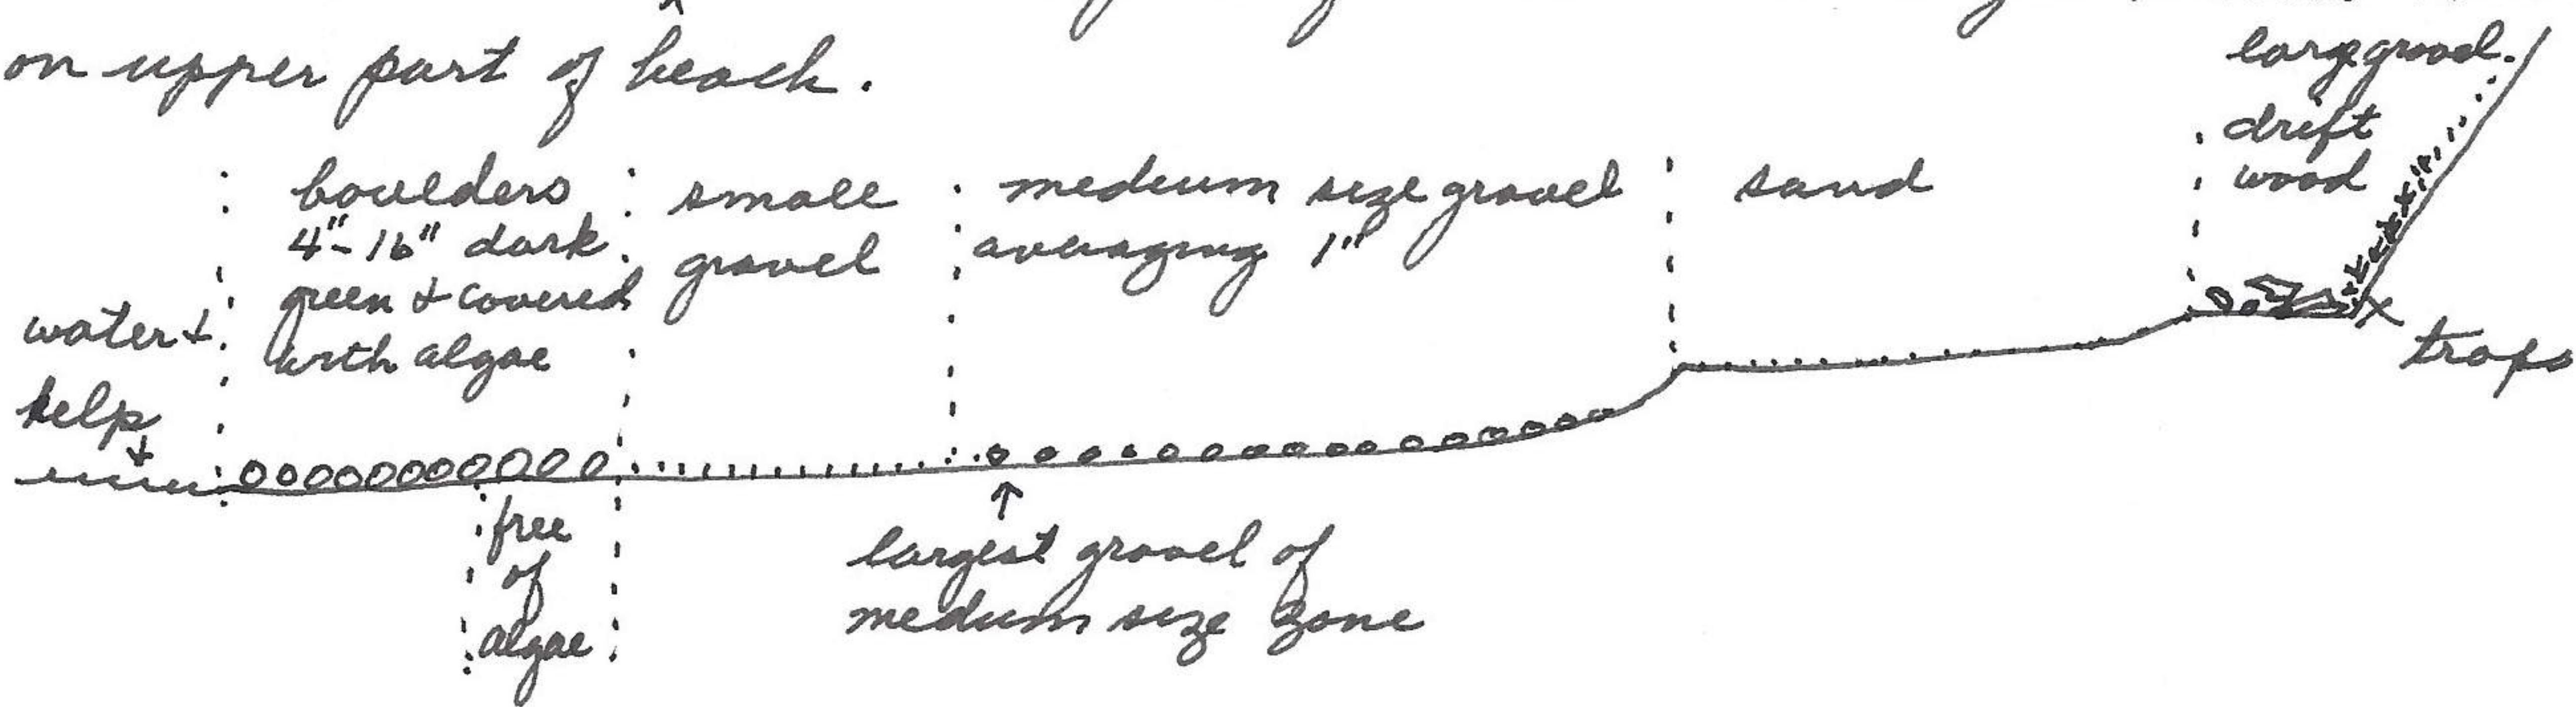 on upper part of beach.
large gravel.
drift
wood
boulders
4"-16" dark
green + covered
with algae
small
gravel
medium size gravel
averaging 1"
sand
water +
kelp
traps
free
of
algae
largest gravel of
medium size zone